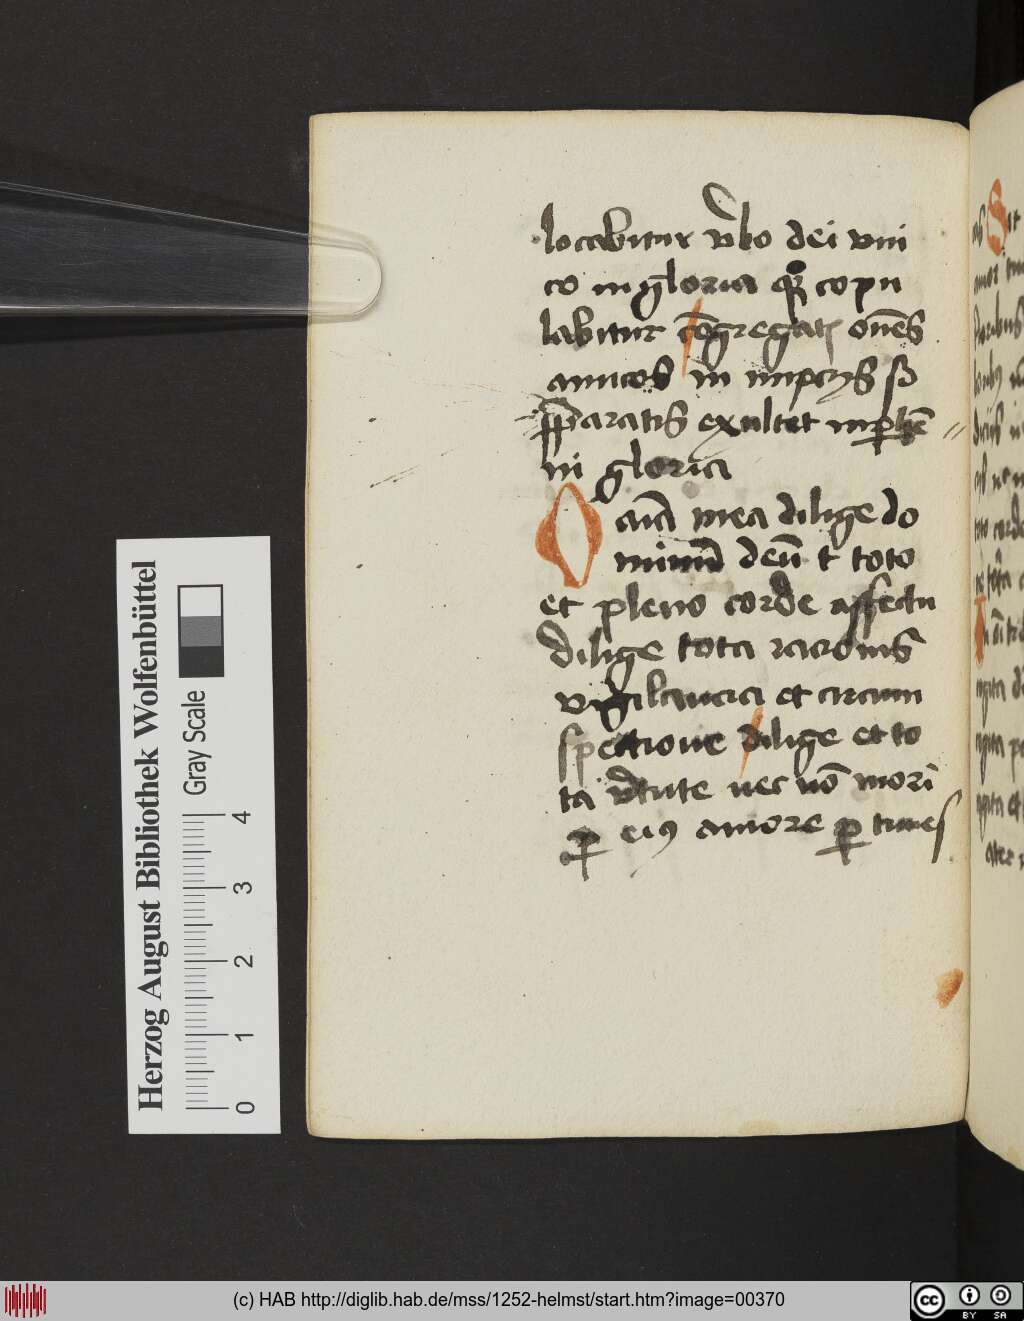 locabitur v̾bo dei vni
co in gloria qr̃ copu
labitur cōgregatꝭ om̄es
amicos in nupcijs so
exultet
in gloria
O aīa mea dilige do
minū deū t toto
et pleno corde affectu
dilige tota racionis
vigilancia et circum
spectione dilige et to
ta v̾tute nec nō mori
ꝑ eiꝰ amore ꝑ times
Herzog August Bibliothek Wolfenbüttel
Gray Scale
0 1 2 3 4
(c) HAB http://diglib.hab.de/mss/1252-helmst/start.htm?image=00370
cc BY SA